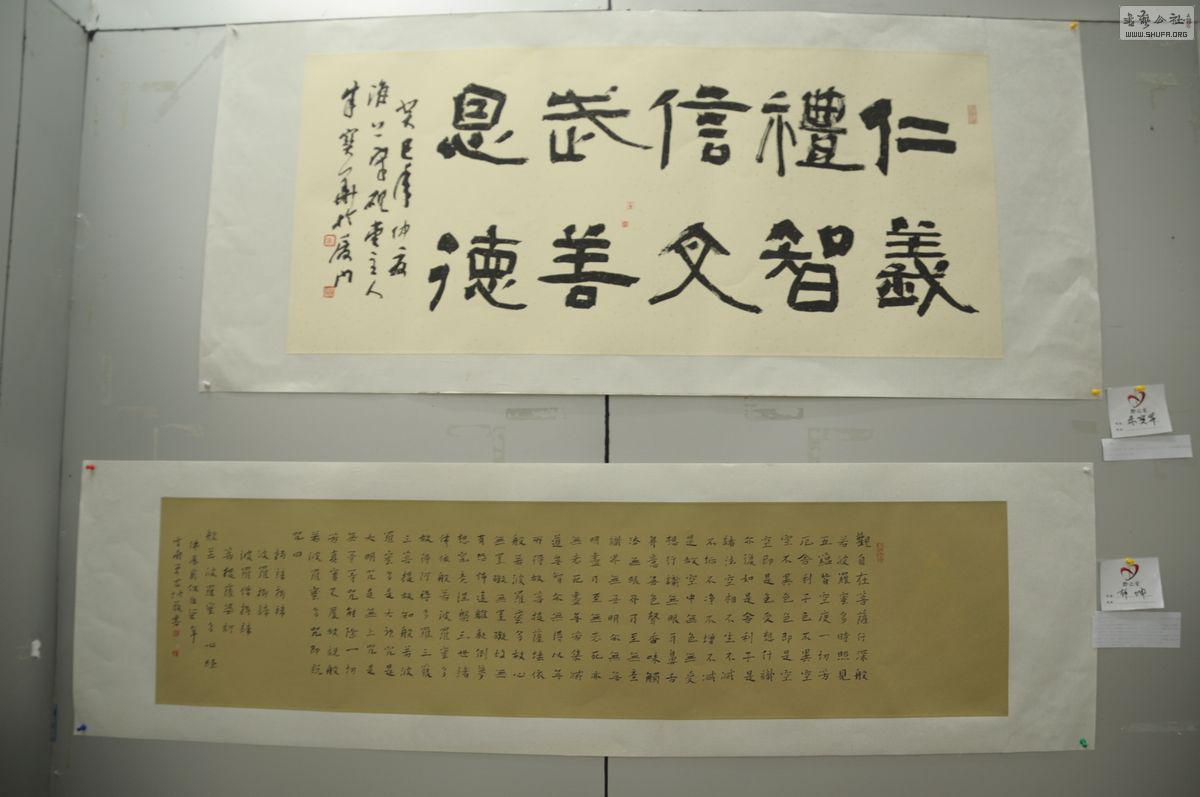 書藝公社
WWW.SHUFA.ORG
仁義
禮智
信文
武善
恩德
癸巳年仲夏
朱寶華於厦门
朱宝华
觀自在菩薩行深般
若波羅蜜多時照見
五蘊皆空度一切苦
厄舍利子色不異空
空不異色色即是空
空即是色受想行識
亦復如是舍利子是
諸法空相不生不滅
不垢不淨不增不減
是故空中無色無受
想行識無眼耳鼻舌
身意無色聲香味觸
法無眼界乃至無意
識界無無明亦無無
明盡乃至無老死亦
無老死盡無苦集滅
道無智亦無得以無
所得故菩提薩埵依
般若波羅蜜多故心
無罣礙無罣礙故無
有恐怖遠離顛倒夢
想究竟涅槃三世諸
佛依般若波羅蜜多
故得阿耨多羅三藐
三菩提故知般若波
羅蜜多是大神咒是
大明咒是無上咒是
無等等咒能除一切
苦真實不虛故說般
若波羅蜜多咒即說
咒曰
揭諦揭諦
波羅揭諦
波羅僧揭諦
菩提薩婆訶
般若波羅蜜多心經